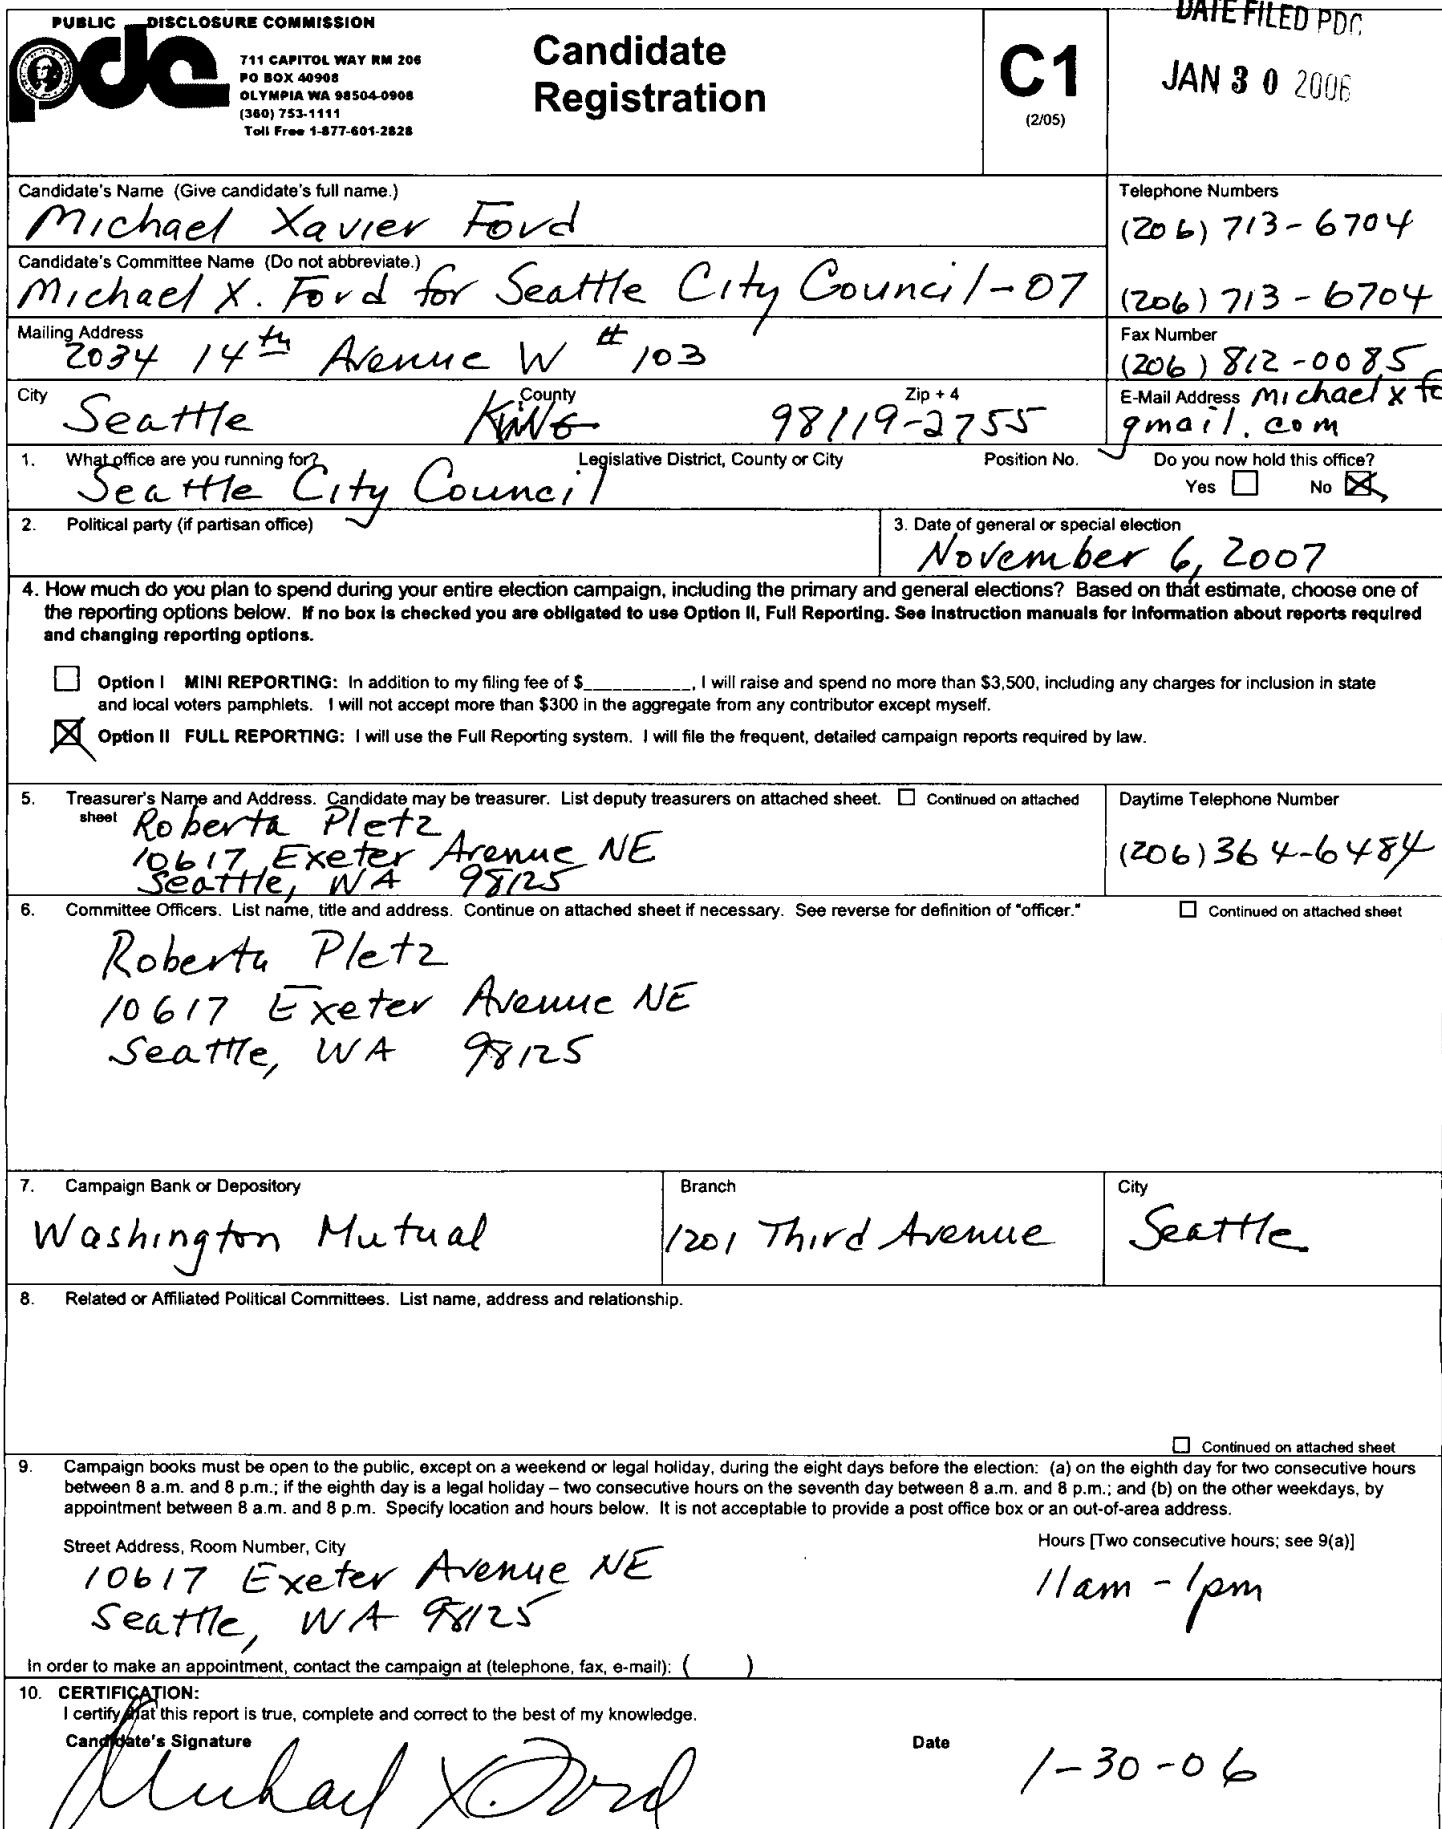 PUBLIC DISCLOSURE COMMISSION
pdc
711 CAPITOL WAY RM 206
PO BOX 40908
OLYMPIA WA 98504-0908
(360) 753-1111
Toll Free 1-877-601-2828
Candidate
Registration
C1
(2/05)
DATE FILED PDC
JAN 30 2006
Candidate's Name (Give candidate's full name.)
Michael Xavier Ford
Telephone Numbers
(206) 713-6704
Candidate's Committee Name (Do not abbreviate.)
Michael X. Ford for Seattle City Council-07
(206) 713-6704
Mailing Address
2034 14th Avenue W #103
Fax Number
(206) 812-0085
City
Seattle
County
KING
Zip + 4
98119-2755
E-Mail Address michael x fo
gmail.com
1. What office are you running for?
Seattle City Council
Legislative District, County or City
Position No.
Do you now hold this office?
Yes No
2. Political party (if partisan office)
3. Date of general or special election
November 6, 2007
4. How much do you plan to spend during your entire election campaign, including the primary and general elections? Based on that estimate, choose one of
the reporting options below. If no box is checked you are obligated to use Option II, Full Reporting. See instruction manuals for information about reports required
and changing reporting options.
Option I MINI REPORTING: In addition to my filing fee of $___________, I will raise and spend no more than $3,500, including any charges for inclusion in state
and local voters pamphlets. I will not accept more than $300 in the aggregate from any contributor except myself.
Option II FULL REPORTING: I will use the Full Reporting system. I will file the frequent, detailed campaign reports required by law.
5. Treasurer's Name and Address. Candidate may be treasurer. List deputy treasurers on attached sheet. Continued on attached
sheet
Roberta Pletz
10617 Exeter Avenue NE
Seattle, WA 98125
Daytime Telephone Number
(206) 364-6484
6. Committee Officers. List name, title and address. Continue on attached sheet if necessary. See reverse for definition of "officer." Continued on attached sheet
Roberta Pletz
10617 Exeter Avenue NE
Seattle, WA 98125
7. Campaign Bank or Depository
Washington Mutual
Branch
1201 Third Avenue
City
Seattle
8. Related or Affiliated Political Committees. List name, address and relationship.
Continued on attached sheet
9. Campaign books must be open to the public, except on a weekend or legal holiday, during the eight days before the election: (a) on the eighth day for two consecutive hours
between 8 a.m. and 8 p.m.; if the eighth day is a legal holiday – two consecutive hours on the seventh day between 8 a.m. and 8 p.m.; and (b) on the other weekdays, by
appointment between 8 a.m. and 8 p.m. Specify location and hours below. It is not acceptable to provide a post office box or an out-of-area address.
Street Address, Room Number, City
10617 Exeter Avenue NE
Seattle, WA 98125
Hours [Two consecutive hours; see 9(a)]
11am - 1pm
In order to make an appointment, contact the campaign at (telephone, fax, e-mail): ( )
10. CERTIFICATION:
I certify that this report is true, complete and correct to the best of my knowledge.
Candidate's Signature
Michael X Ford
Date
1-30-06